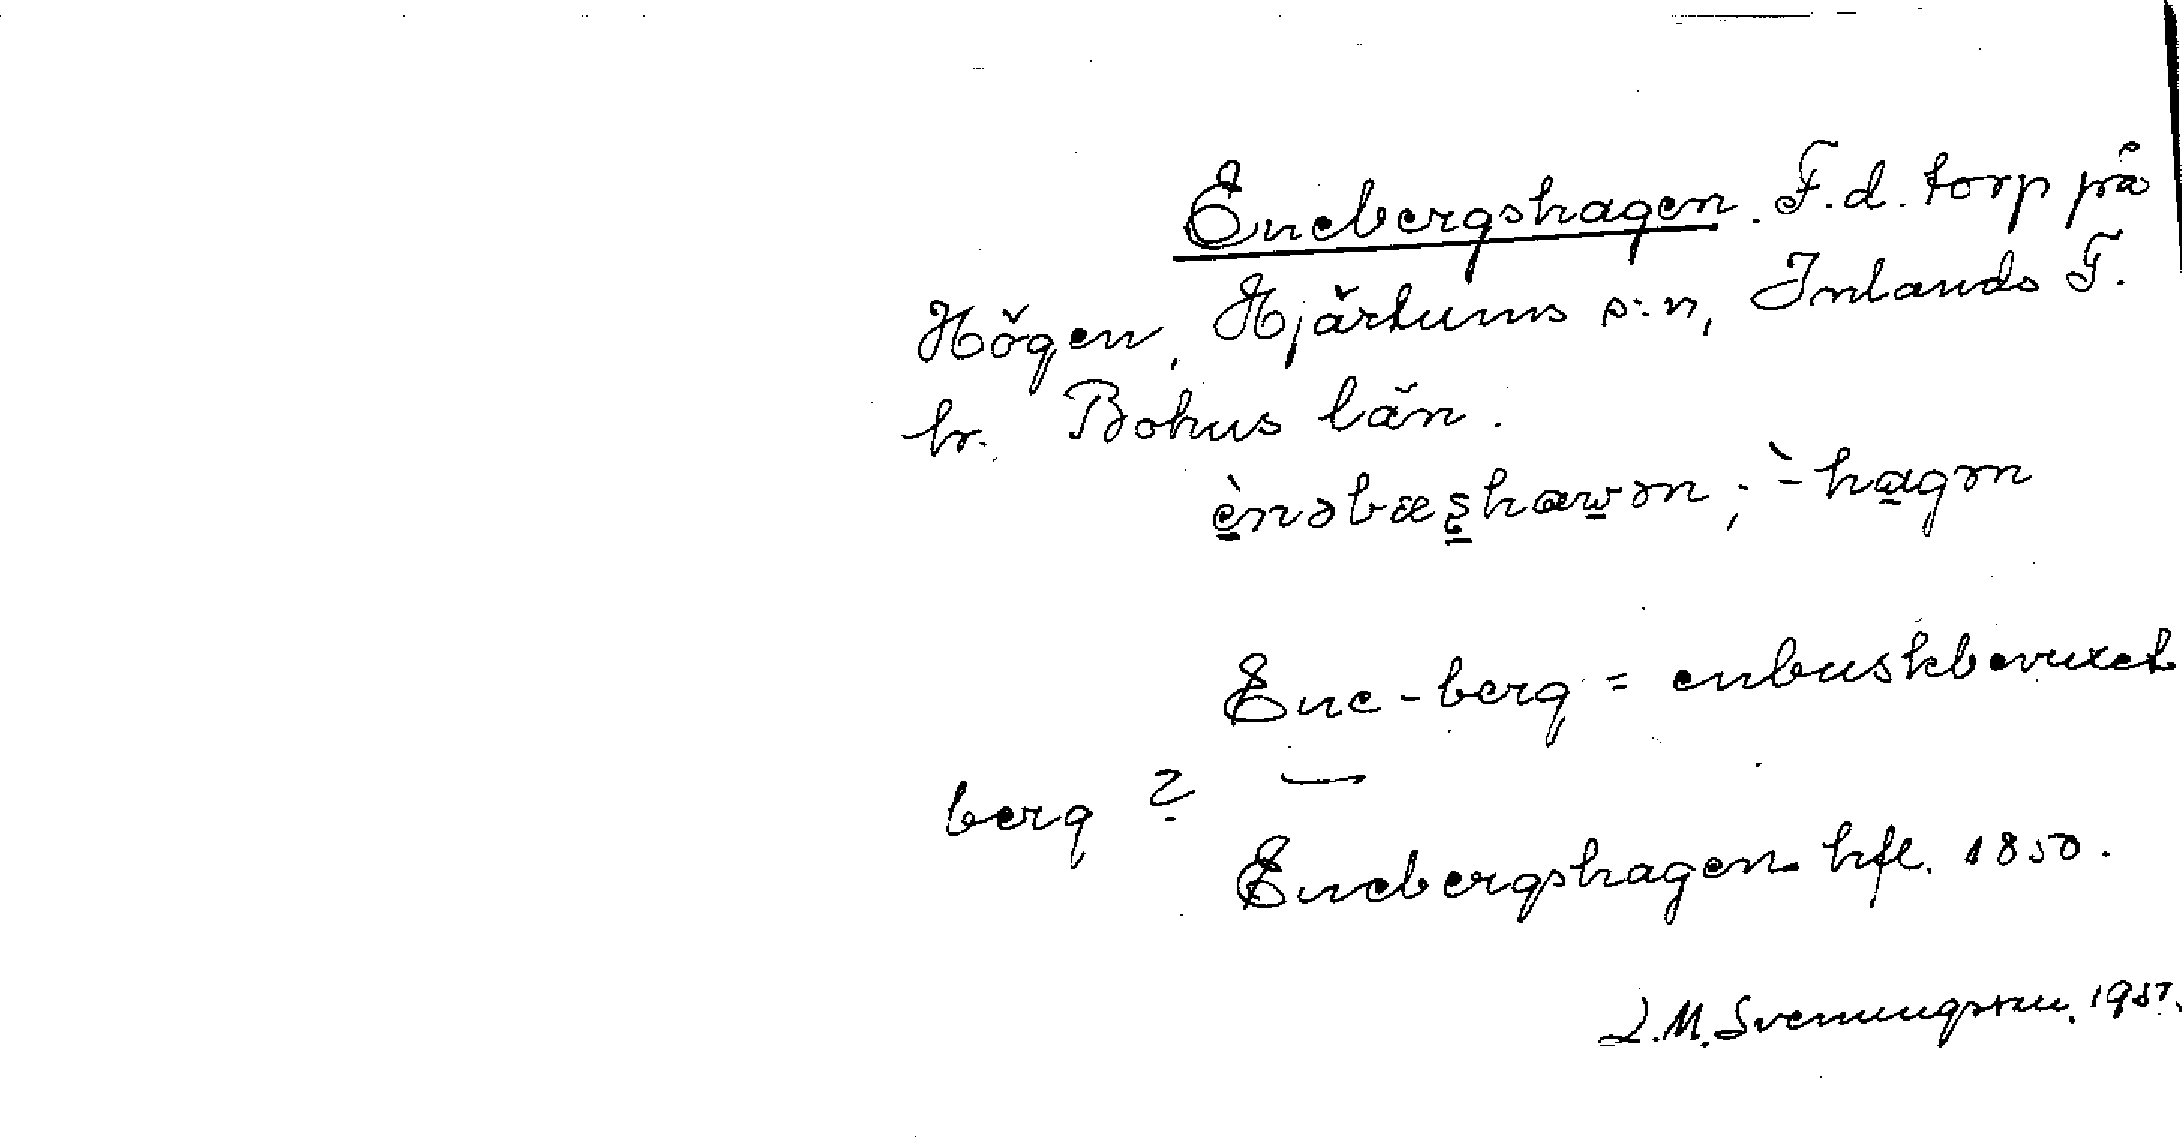 Enebergshagen. F.d. torp på
Högen, Hjärtums s:n, Inlands T.
hr. Bohus län.
è̱nəbæṣhaw̱ən; `-ha̱gən
Ene-berg = enbuskbevuxet
berg ? —
Enebergshagen hfl. 1850.
L.M. Svenungsson.